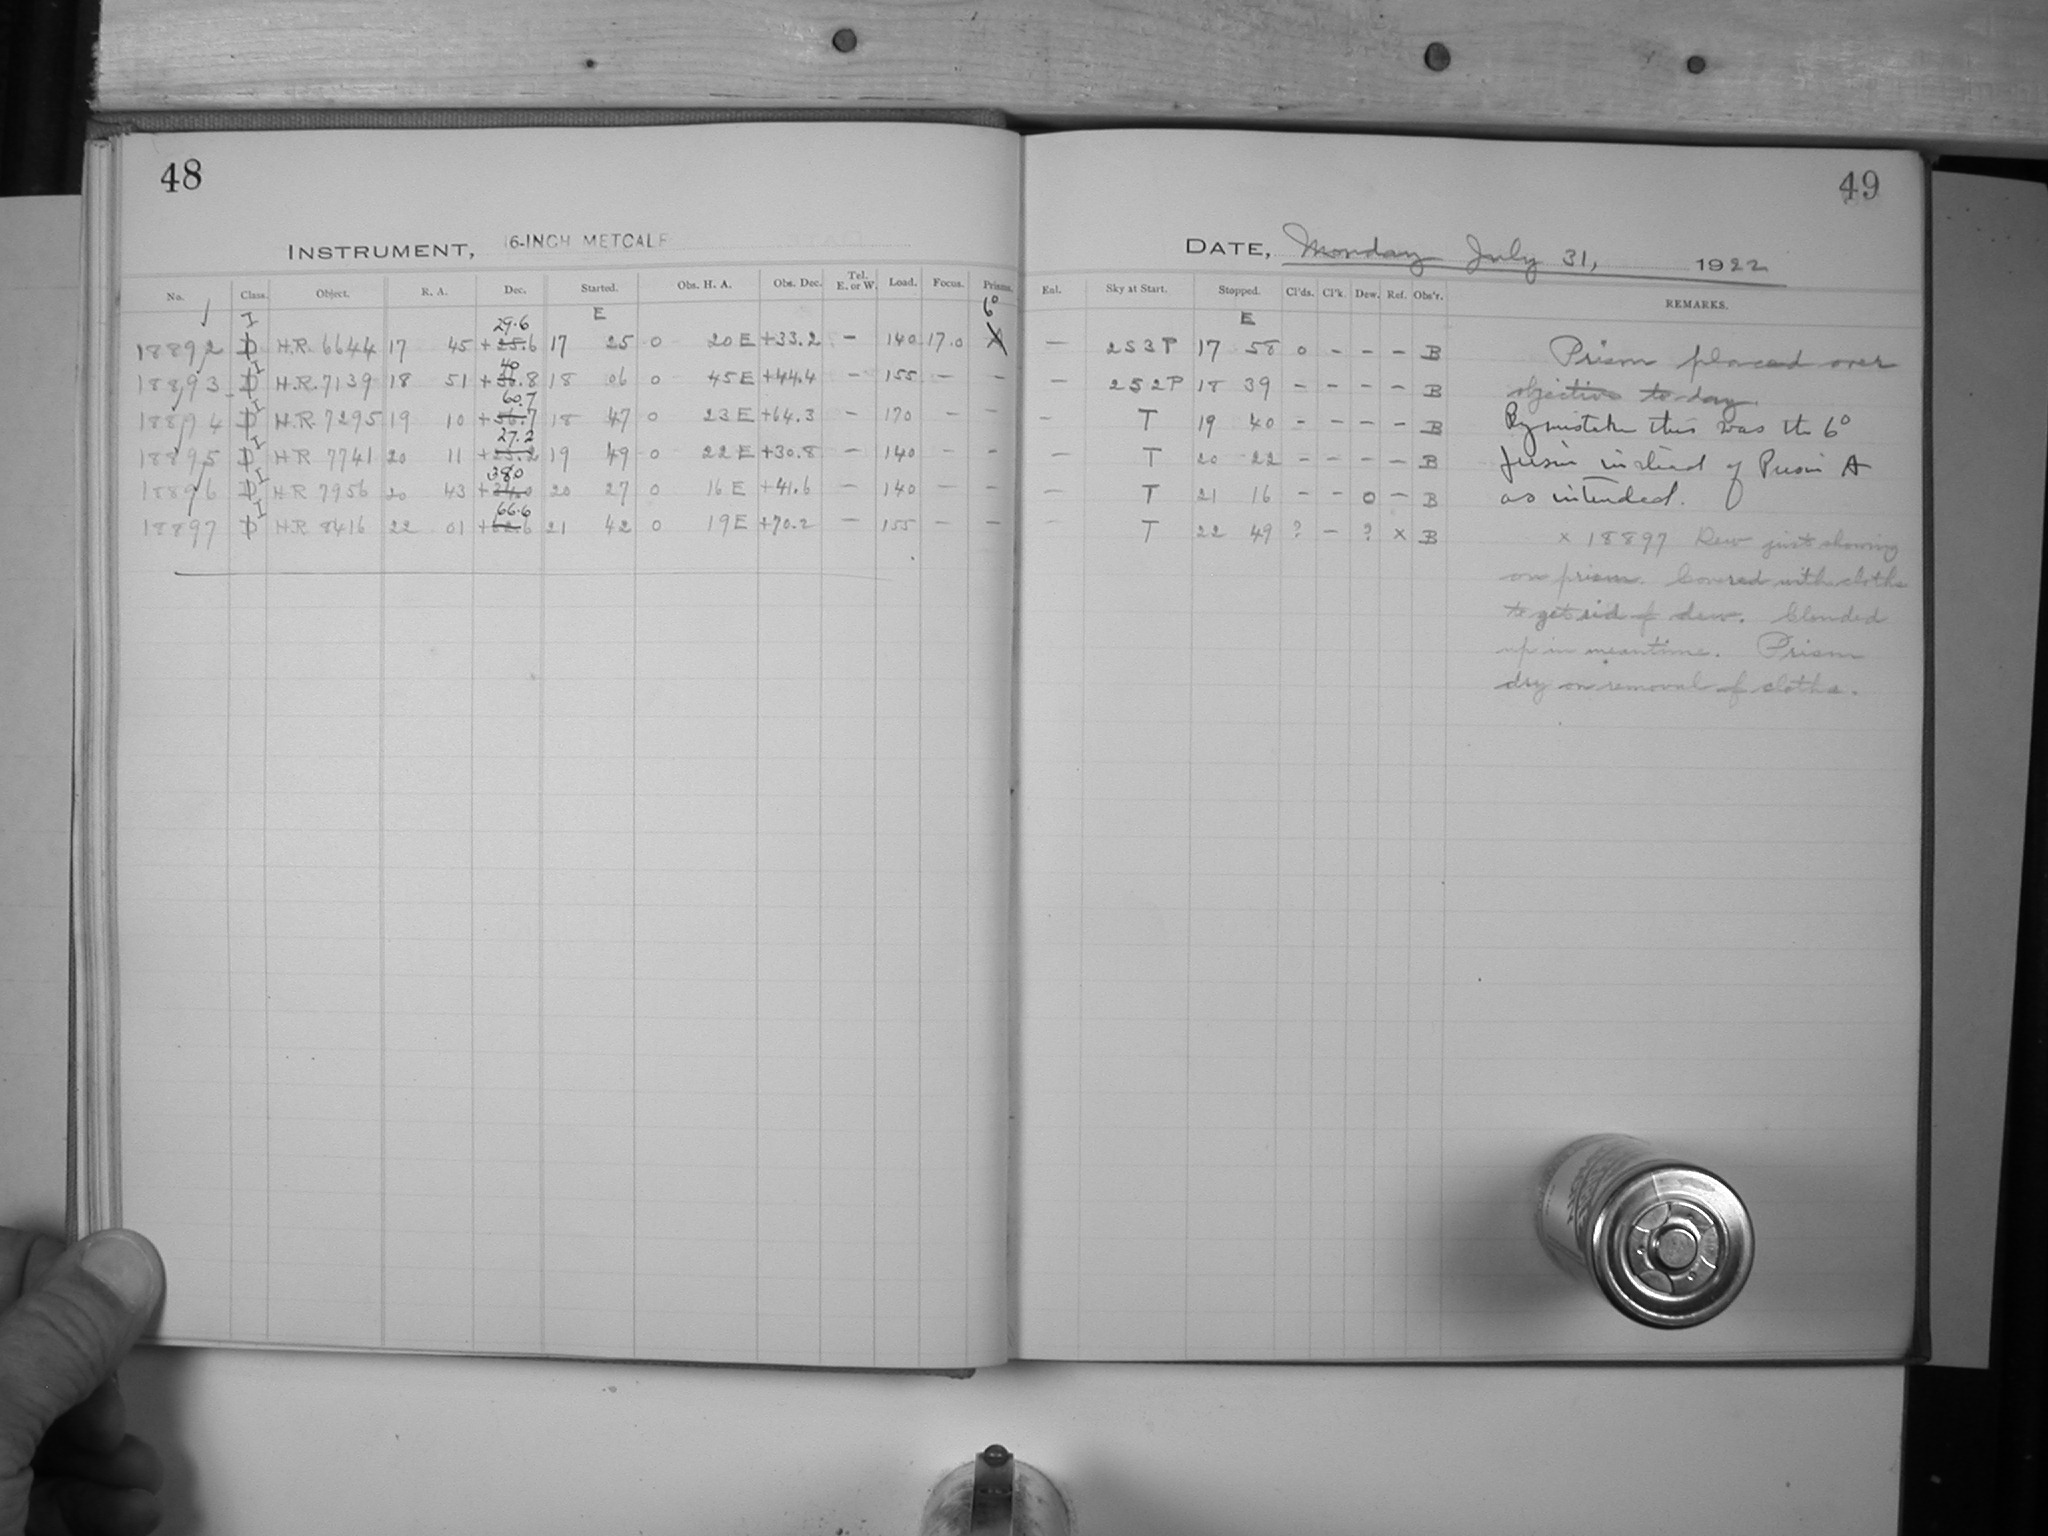 48
INSTRUMENT, 16-INCH METCALF
No. Class. Object. R. A. Dec. Started. Obs. H. A. Obs. Dec. Tel. E. or W. Load. Focus. Prisms.
I E 6°
29.6
18892 D H.R. 6644 17 45 +25.6 17 25 0 20 E +33.2 – 140 17.0 A
I 40
18893 D H.R. 7139 18 51 +36.8 18 06 0 45 E +44.4 – 155 – –
I 60.7
18894 D H.R. 7295 19 10 +56.7 18 47 0 23 E +64.3 – 170 – –
I 27.2
18895 D HR 7741 20 11 +23.2 19 49 0 22 E +30.8 – 140 – –
I 38.0
18896 D HR 7956 20 43 +34.0 20 27 0 16 E +41.6 – 140 – –
I 66.6
18897 D HR 8416 22 01 +62.6 21 42 0 19 E +70.2 – 155 – –
49
DATE, Monday July 31, 1922
Enl. Sky at Start. Stopped. Cl'ds. Cl'k. Dew. Ref. Obs'r. REMARKS.
E
– 2S3P 17 58 0 – – – B Prism placed over
– 2S2P 18 39 – – – – B objective to-day.
– T 19 40 – – – – B By mistake this was the 6°
– T 20 22 – – – – B prism instead of Prism A
– T 21 16 – – 0 – B as intended.
– T 22 49 ? – ? x B x 18897 Dew just showing
on prism. Covered with cloths
to get rid of dew. Clouded
up in meantime. Prism
dry on removal of cloths.